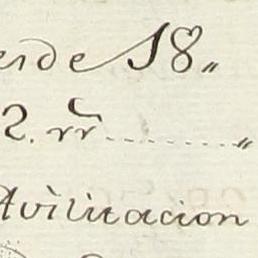 esde 18„
2. rr̃ ......... „
Avilitacion